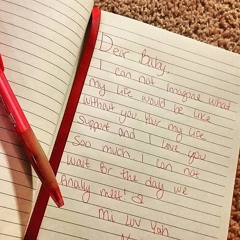 Dear Baby,
I can not imagine what
my life would be like
without you. Your my life
support and I love you
Soo much. I can not
wait for the day we
finally meet!
Mi Luv Yah